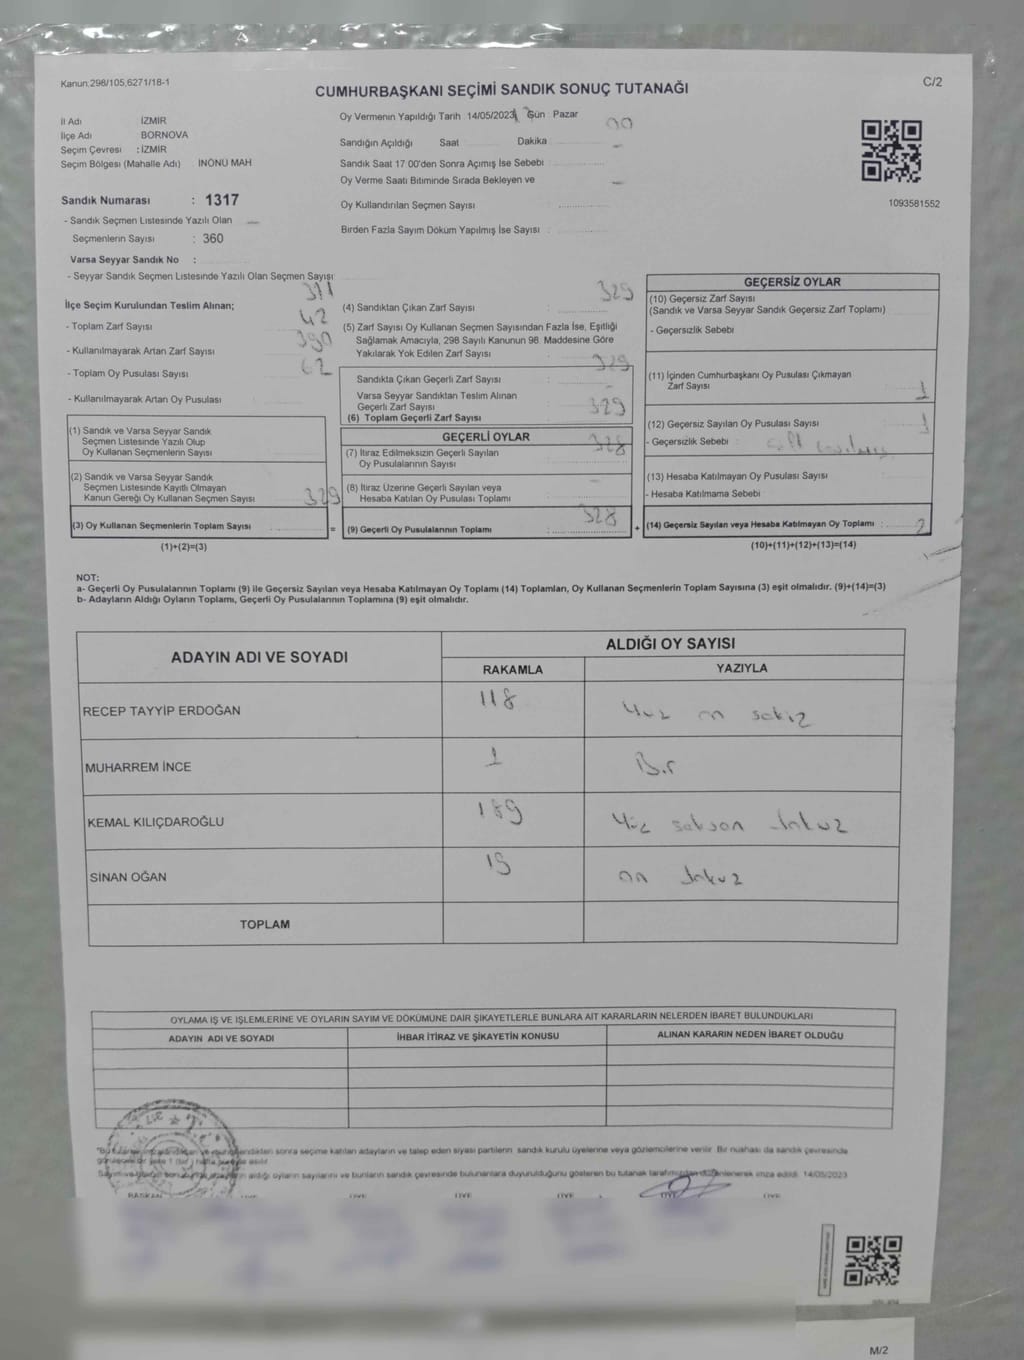 Kanun:298/105,6271/18-1
C/2
CUMHURBAŞKANI SEÇİMİ SANDIK SONUÇ TUTANAĞI
İl Adı İZMİR
İlçe Adı BORNOVA
Seçim Çevresi : İZMİR
Seçim Bölgesi (Mahalle Adı) . İNÖNÜ MAH
Sandık Numarası : 1317
- Sandık Seçmen Listesinde Yazılı Olan
Seçmenlerin Sayısı : 360
Varsa Seyyar Sandık No :
- Seyyar Sandık Seçmen Listesinde Yazılı Olan Seçmen Sayısı
Oy Vermenin Yapıldığı Tarih 14/05/2023 Gün Pazar
Sandığın Açıldığı Saat Dakika
Sandık Saat 17 00'den Sonra Açımış İse Sebebi
Oy Verme Saati Bitiminde Sırada Bekleyen ve
Oy Kullandırılan Seçmen Sayısı :
Birden Fazla Sayım Döküm Yapılmış İse Sayısı :
1093581552
İlçe Seçim Kurulundan Teslim Alınan;
- Toplam Zarf Sayısı
- Kullanılmayarak Artan Zarf Sayısı 42
- Toplam Oy Pusulası Sayısı 390
- Kullanılmayarak Artan Oy Pusulası 62
(1) Sandık ve Varsa Seyyar Sandık
Seçmen Listesinde Yazılı Olup
Oy Kullanan Seçmenlerin Sayısı
(2) Sandık ve Varsa Seyyar Sandık
Seçmen Listesinde Kayıtlı Olmayan
Kanun Gereği Oy Kullanan Seçmen Sayısı
(3) Oy Kullanan Seçmenlerin Toplam Sayısı 329
(1)+(2)=(3)
(4) Sandıktan Çıkan Zarf Sayısı : 329
(5) Zarf Sayısı Oy Kullanan Seçmen Sayısından Fazla İse, Eşitliği
Sağlamak Amacıyla, 298 Sayılı Kanunun 98. Maddesine Göre
Yakılarak Yok Edilen Zarf Sayısı
Sandıkta Çıkan Geçerli Zarf Sayısı : 329
Varsa Seyyar Sandıktan Teslim Alınan
Geçerli Zarf Sayısı : -
(6) Toplam Geçerli Zarf Sayısı : 329
GEÇERLİ OYLAR
(7) İtiraz Edilmeksizin Geçerli Sayılan
Oy Pusulalarının Sayısı : 328
(8) İtiraz Üzerine Geçerli Sayılan veya
Hesaba Katılan Oy Pusulası Toplamı : -
= (9) Geçerli Oy Pusulalarının Toplamı : 328
GEÇERSİZ OYLAR
(10) Geçersiz Zarf Sayısı
(Sandık ve Varsa Seyyar Sandık Geçersiz Zarf Toplamı)
- Geçersizlik Sebebi
(11) İçinden Cumhurbaşkanı Oy Pusulası Çıkmayan
Zarf Sayısı 1
(12) Geçersiz Sayılan Oy Pusulası Sayısı 1
- Geçersizlik Sebebi :
(13) Hesaba Katılmayan Oy Pusulası Sayısı
- Hesaba Katılmama Sebebi
+ (14) Geçersiz Sayılan veya Hesaba Katılmayan Oy Toplamı : 2
(10)+(11)+(12)+(13)=(14)
NOT:
a- Geçerli Oy Pusulalarının Toplamı (9) ile Geçersiz Sayılan veya Hesaba Katılmayan Oy Toplamı (14) Toplamları, Oy Kullanan Seçmenlerin Toplam Sayısına (3) eşit olmalıdır. (9)+(14)=(3)
b- Adayların Aldığı Oyların Toplamı, Geçerli Oy Pusulalarının Toplamına (9) eşit olmalıdır.
ADAYIN ADI VE SOYADI ALDIĞI OY SAYISI
RAKAMLA YAZIYLA
RECEP TAYYİP ERDOĞAN 118 Yüz on sekiz
MUHARREM İNCE 1 Bir
KEMAL KILIÇDAROĞLU 189 Yüz seksen dokuz
SİNAN OĞAN 19 on dokuz
TOPLAM
OYLAMA İŞ VE İŞLEMLERİNE VE OYLARIN SAYIM VE DÖKÜMÜNE DAİR ŞİKAYETLERLE BUNLARA AİT KARARLARIN NELERDEN İBARET BULUNDUKLARI
ADAYIN ADI VE SOYADI İHBAR İTİRAZ VE ŞİKAYETİN KONUSU ALINAN KARARIN NEDEN İBARET OLDUĞU
sonra seçime katılan adayların ve talep eden siyasi partilerin sandık kurulu üyelerine veya gözlemcilerine verilir. Bir nüshası da sandık çevresinde
aldığı oyların sayılarını ve bunların sandık çevresinde bulunanlara duyurulduğunu gösteren bu tutanak tarafımızdan düzenlenerek imza edildi. 14/05/2023
BAŞKAN ÜYE ÜYE ÜYE ÜYE ÜYE
M/2